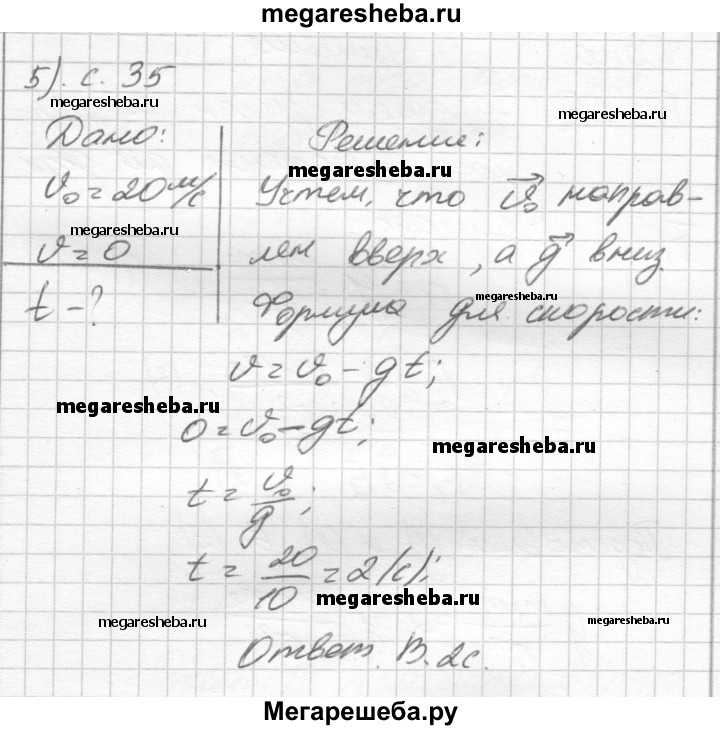 megaresheba.ru
5). с. 35
megaresheba.ru
megaresheba.ru
Дано:
Решение:
megaresheba.ru
v₀ = 20 м/с
Учтем, что v⃗₀ направ-
megaresheba.ru
v = 0
лен вверх, а g⃗ вниз.
megaresheba.ru
t - ?
Формула для скорости:
v = v₀ - gt;
megaresheba.ru
0 = v₀ - gt;
megaresheba.ru
t = v₀/g;
t = 20/10 = 2 (с);
megaresheba.ru
megaresheba.ru
megaresheba.ru
Ответ. В. 2с.
Мегарешеба.ру